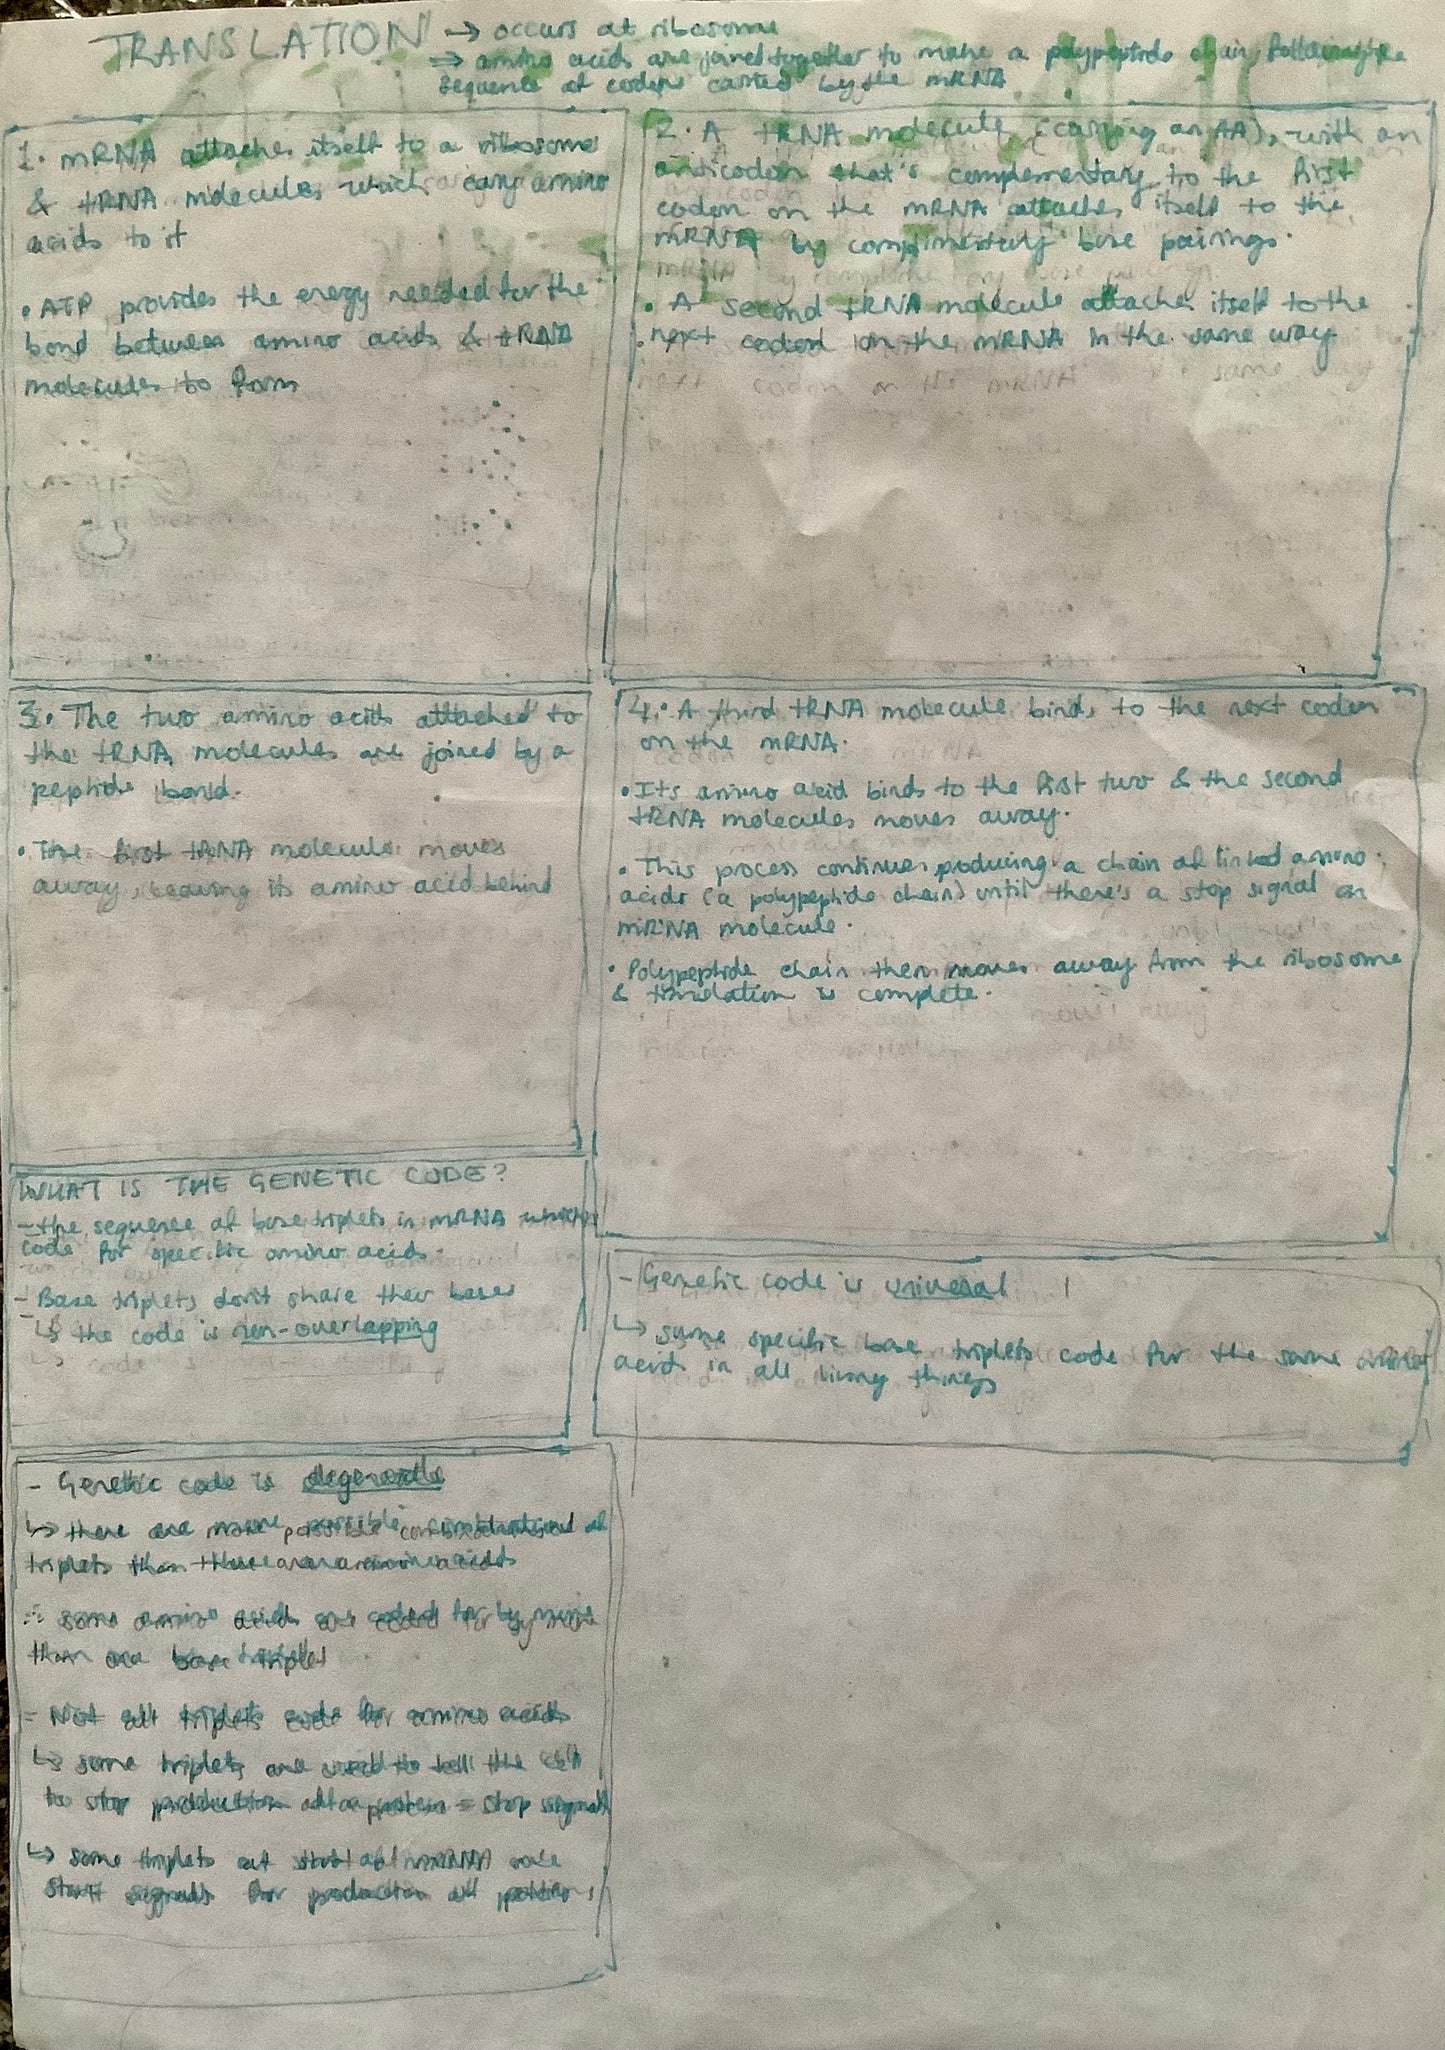 TRANSLATION → occurs at ribosome
⇒ amino acids are joined together to make a polypeptide chain, following the
sequence of codons carried by the mRNA
1. mRNA attaches itself to a ribosome
& tRNA molecules which carry amino
acids to it
• ATP provides the energy needed for the
bond between amino acids & tRNA
molecules to form
2. A tRNA molecule (carrying an AA), with an
anticodon that's complementary to the first
codon on the mRNA attaches itself to the
mRNA by complimentary base pairings.
• A second tRNA molecule attaches itself to the
next codon on the mRNA in the same way.
3. The two amino acids attached to
the tRNA molecules are joined by a
peptide bond.
• The first tRNA molecule moves
away, leaving its amino acid behind
4. • A third tRNA molecule binds to the next codon
on the mRNA.
• Its amino acid binds to the first two & the second
tRNA molecules moves away.
• This process continues, producing a chain of linked amino
acids (a polypeptide chain) until there's a stop signal on
mRNA molecule.
• Polypeptide chain then moves away from the ribosome
& translation is complete.
WHAT IS THE GENETIC CODE?
- the sequence of base triplets in mRNA which
code for specific amino acids.
- Base triplets don't share their bases
↳ the code is non-overlapping
- Genetic code is universal
↳ same specific base triplets code for the same amino
acids in all living things
- Genetic code is degenerate
↳ there are more possible combinations of
triplets than there are amino acids
∴ some amino acids are coded for by more
than one base triplet
- Not all triplets code for amino acids
↳ some triplets are used to tell the cell
to stop production of a protein = stop signals
↳ some triplets at start of mRNA are
start signals for production of protein